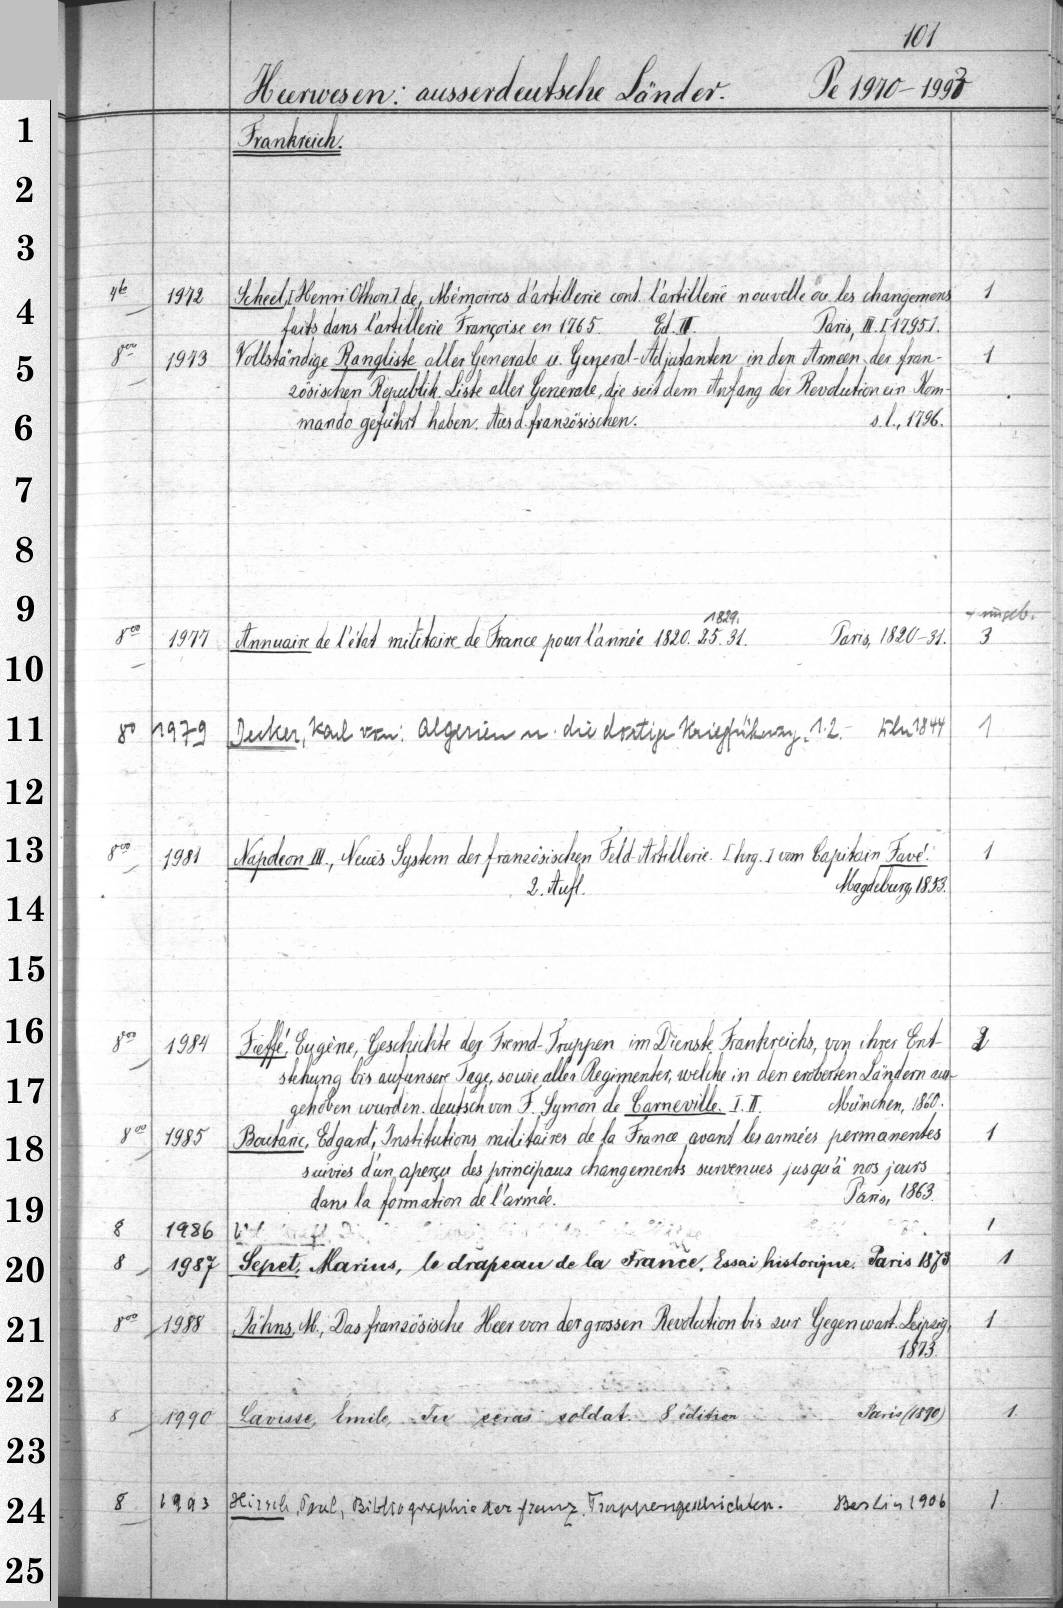 101
Heerwesen: ausserdeutsche Länder. Pe 1970-1993
1
Frankreich.
2
3
4to 1972 Scheel, [Henri Othon] de, Mémoires d'artillerie cont. l'artillerie nouvelle ou les changemens 1
4
faits dans l'artillerie Françoise en 1765. Ed. III. Paris, III. [1795].
8vo 1973 Vollständige Rangliste aller Generale u. General-Adjutanten in den Armeen der fran- 1
5
zösischen Republik. Liste aller Generale, die seit dem Anfang der Revolution ein Kom-
6
mando geführt haben. Aus d. französischen. s. l., 1796.
7
8
9
1829.
8vo 1977 Annuaire de l'état militaire de France pour l'année 1820. 25. 31. Paris, 1820-31. 3
10
11
8o 1979 Decker, Karl von: Algerien u. die dortige Kriegführung. 1.2.- 1844 1
12
13
8vo 1981 Napoleon III., Neues System der französischen Feld-Artillerie. [hrg.] vom Capitain Favé. 1
2. Aufl. Magdeburg, 1853.
14
15
16
8vo 1984 Fieffé, Eugène, Geschichte der Fremd-Truppen im Dienste Frankreichs, von ihrer Ent- 2
stehung bis auf unsere Tage, sowie aller Regimenter, welche in den eroberten Ländern aus-
17
gehoben wurden. deutsch von F. Symon de Carneville. I. II. München, 1860.
8vo 1985 Boutaric, Edgard, Institutions militaires de la France avant les armées permanentes 1
18
suivies d'un aperçu des principaux changements survenues jusqu'à nos jours
dans la formation de l'armée. Paris, 1863.
19
8 1986 1
20
8 1987 Sepet, Marius, le drapeau de la France. Essai historique. Paris 1873 1
21
8vo 1988 Jähns, M., Das französische Heer von der grossen Revolution bis zur Gegenwart. Leipzig,
1
1873.
22
8 1990 Lavisse, Emile, Tu seras soldat. 8 édition Paris (1890) 1.
23
24
8 1993 Hirsch, Paul, Bibliographie der franz. Truppengeschichten. Berlin 1906 1
25